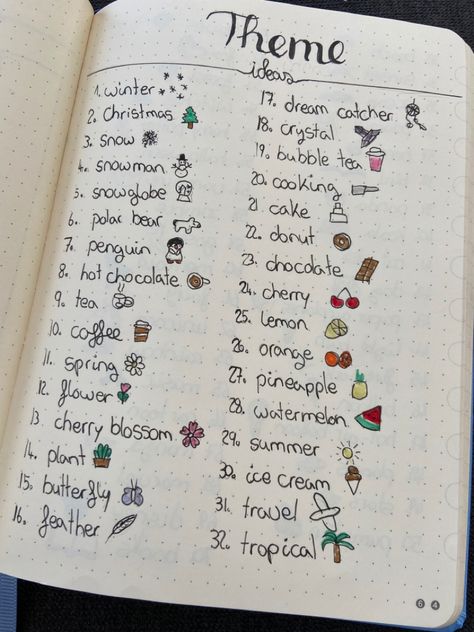 Theme
ideas
1. winter
2. Christmas
3. snow
4. snowman
5. snowglobe
6. polar bear
7. penguin
8. hot chocolate
9. tea
10. coffee
11. spring
12. flower
13. cherry blossom
14. plant
15. butterfly
16. feather
17. dream catcher
18. crystal
19. bubble tea
20. cooking
21 cake
22. donut
23. chocolate
24. cherry
25. lemon
26. orange
27. pineapple
28. watermelon
29. summer
30. ice cream
31. travel
32. tropical
64